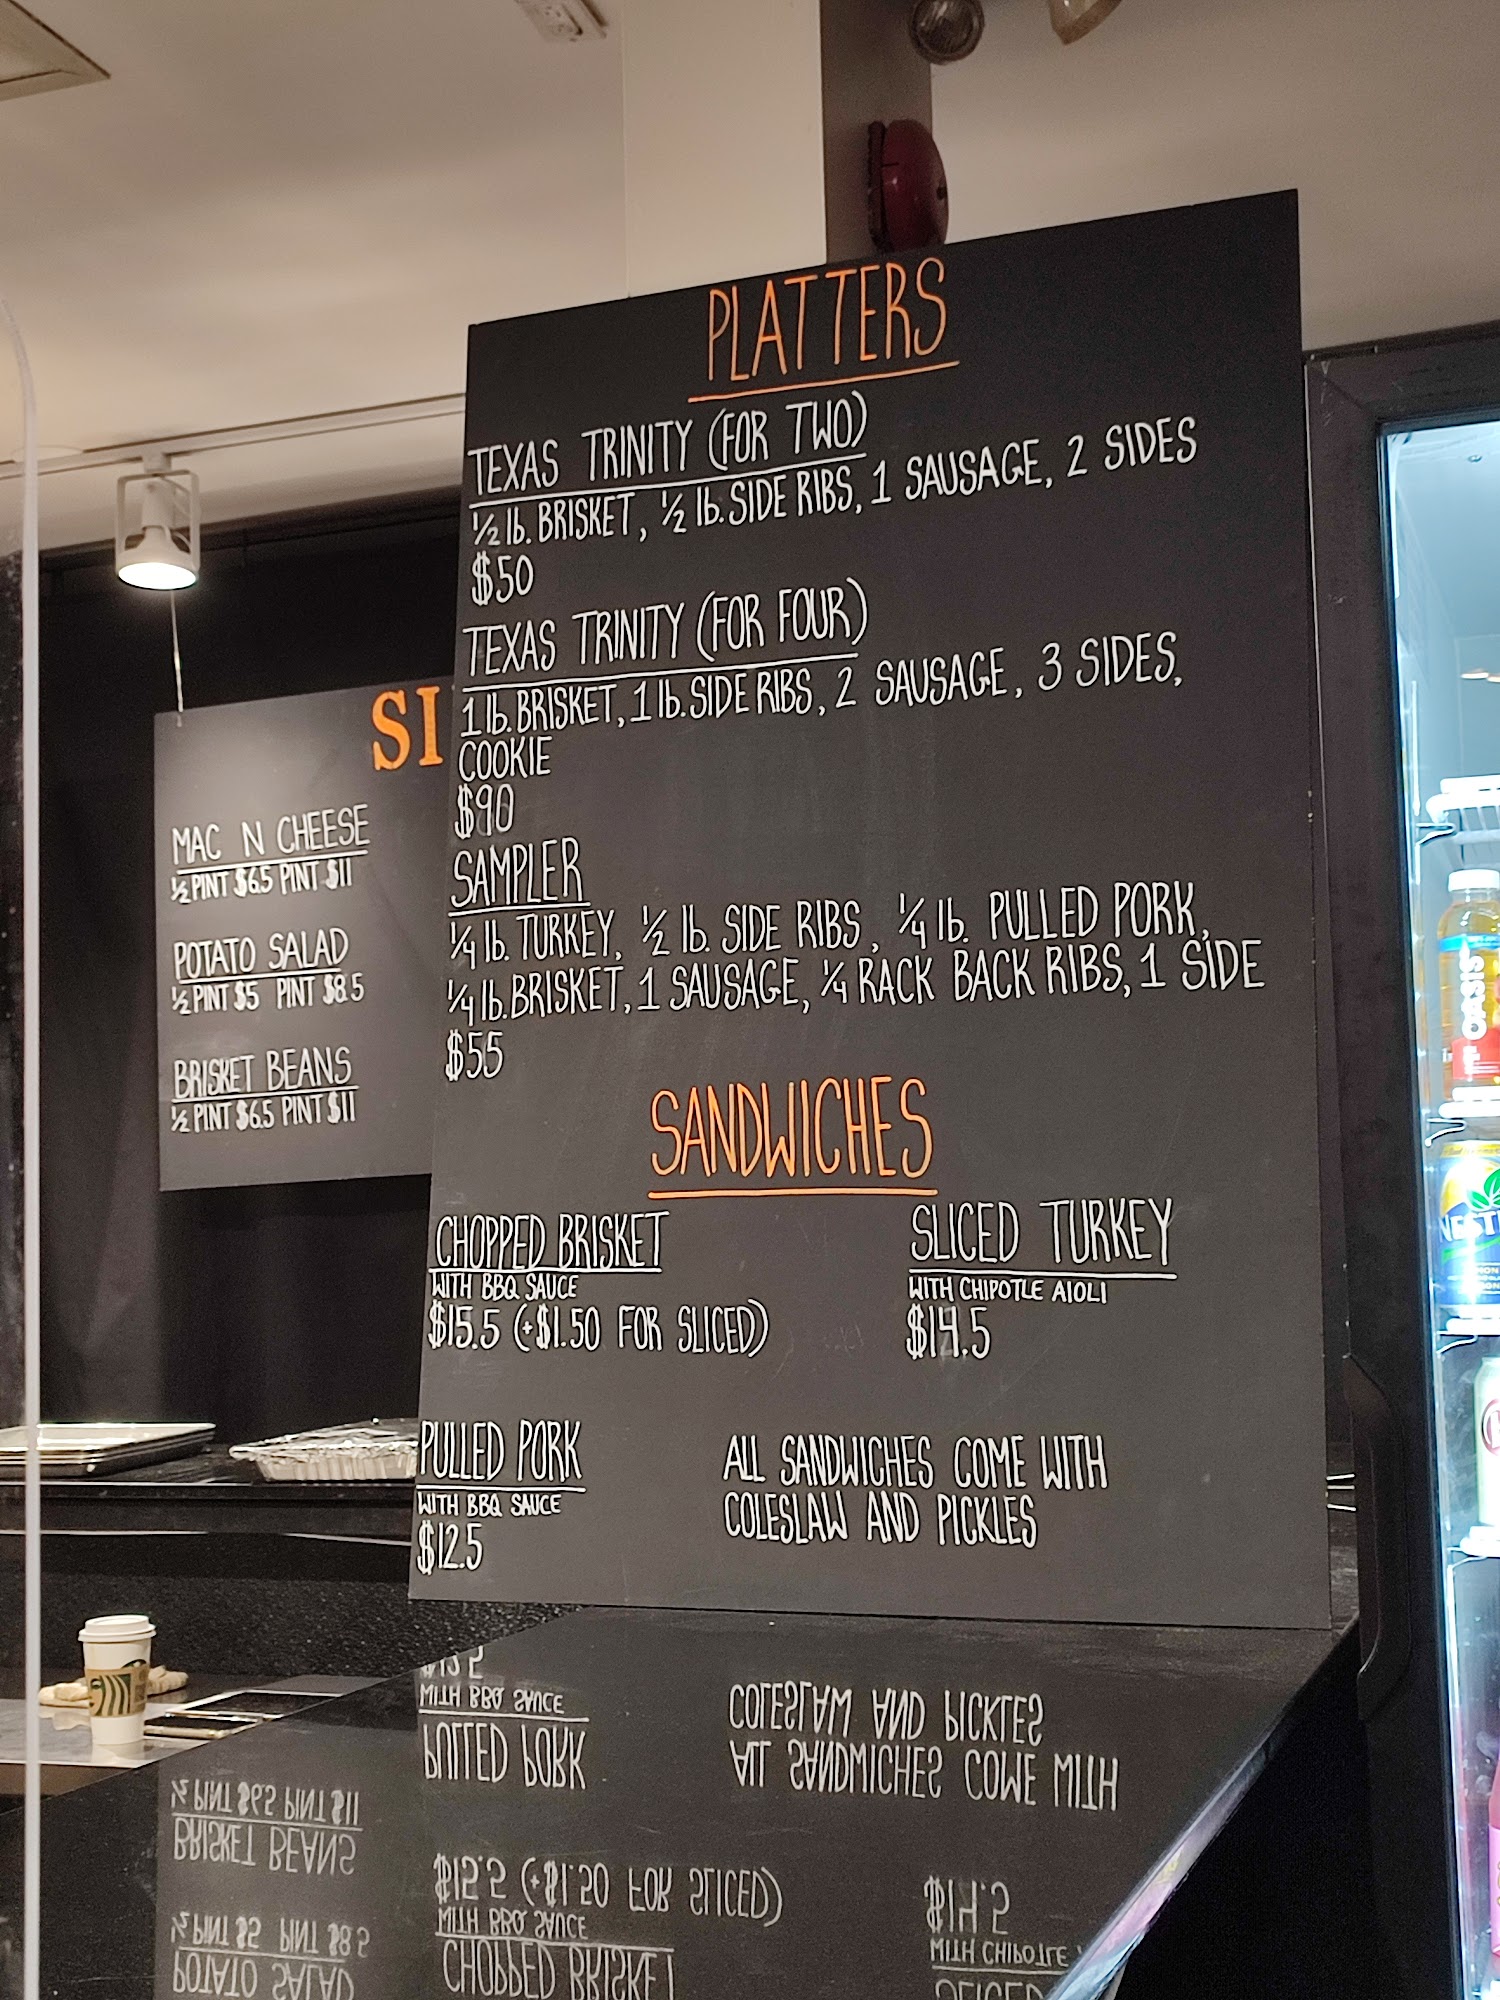 PLATTERS
TEXAS TRINITY (FOR TWO)
½ lb. BRISKET, ½ lb. SIDE RIBS, 1 SAUSAGE, 2 SIDES
$50
TEXAS TRINITY (FOR FOUR)
1 lb. BRISKET, 1 lb. SIDE RIBS, 2 SAUSAGE, 3 SIDES,
COOKIE
$90
SAMPLER
¼ lb. TURKEY, ½ lb. SIDE RIBS, ¼ lb. PULLED PORK,
¼ lb. BRISKET, 1 SAUSAGE, ¼ RACK BACK RIBS, 1 SIDE
$55
SANDWICHES
CHOPPED BRISKET
WITH BBQ SAUCE
$15.5 (+$1.50 FOR SLICED)
SLICED TURKEY
WITH CHIPOTLE AIOLI
$14.5
PULLED PORK
WITH BBQ SAUCE
$12.5
ALL SANDWICHES COME WITH
COLESLAW AND PICKLES
SI
MAC N CHEESE
½ PINT $6.5 PINT $11
POTATO SALAD
½ PINT $5 PINT $8.5
BRISKET BEANS
½ PINT $6.5 PINT $11
OASIS
NEST